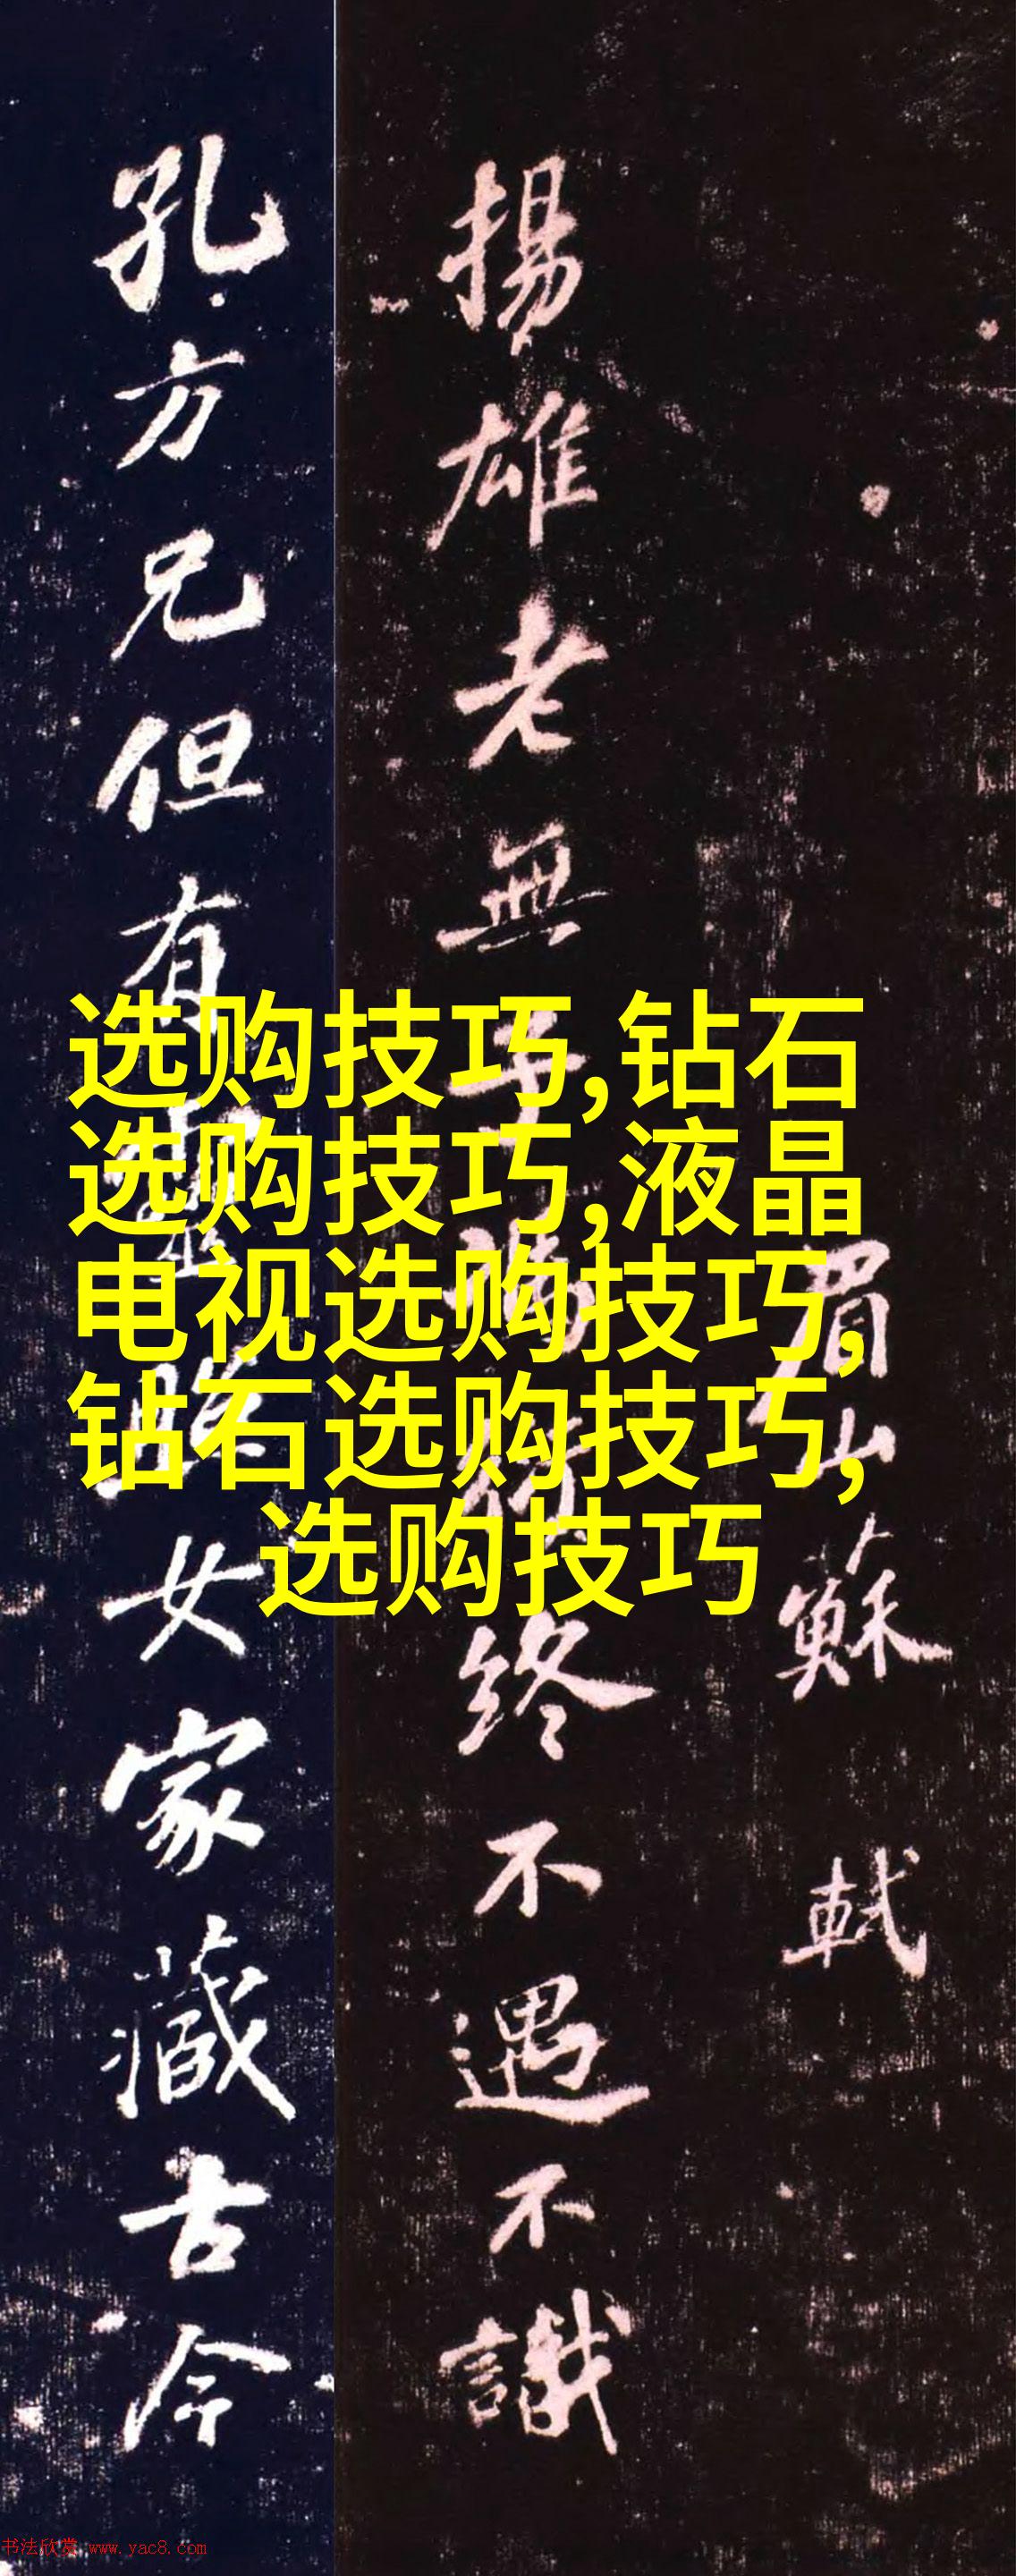 选购技巧,钻石
选购技巧,液晶
电视选购技巧,
钻石选购技巧,
选购技巧
孔方兄但有
女家藏古今
揚雄老無
终不遇不識
眉山蘇軾
书法欣赏 www.yac8.com